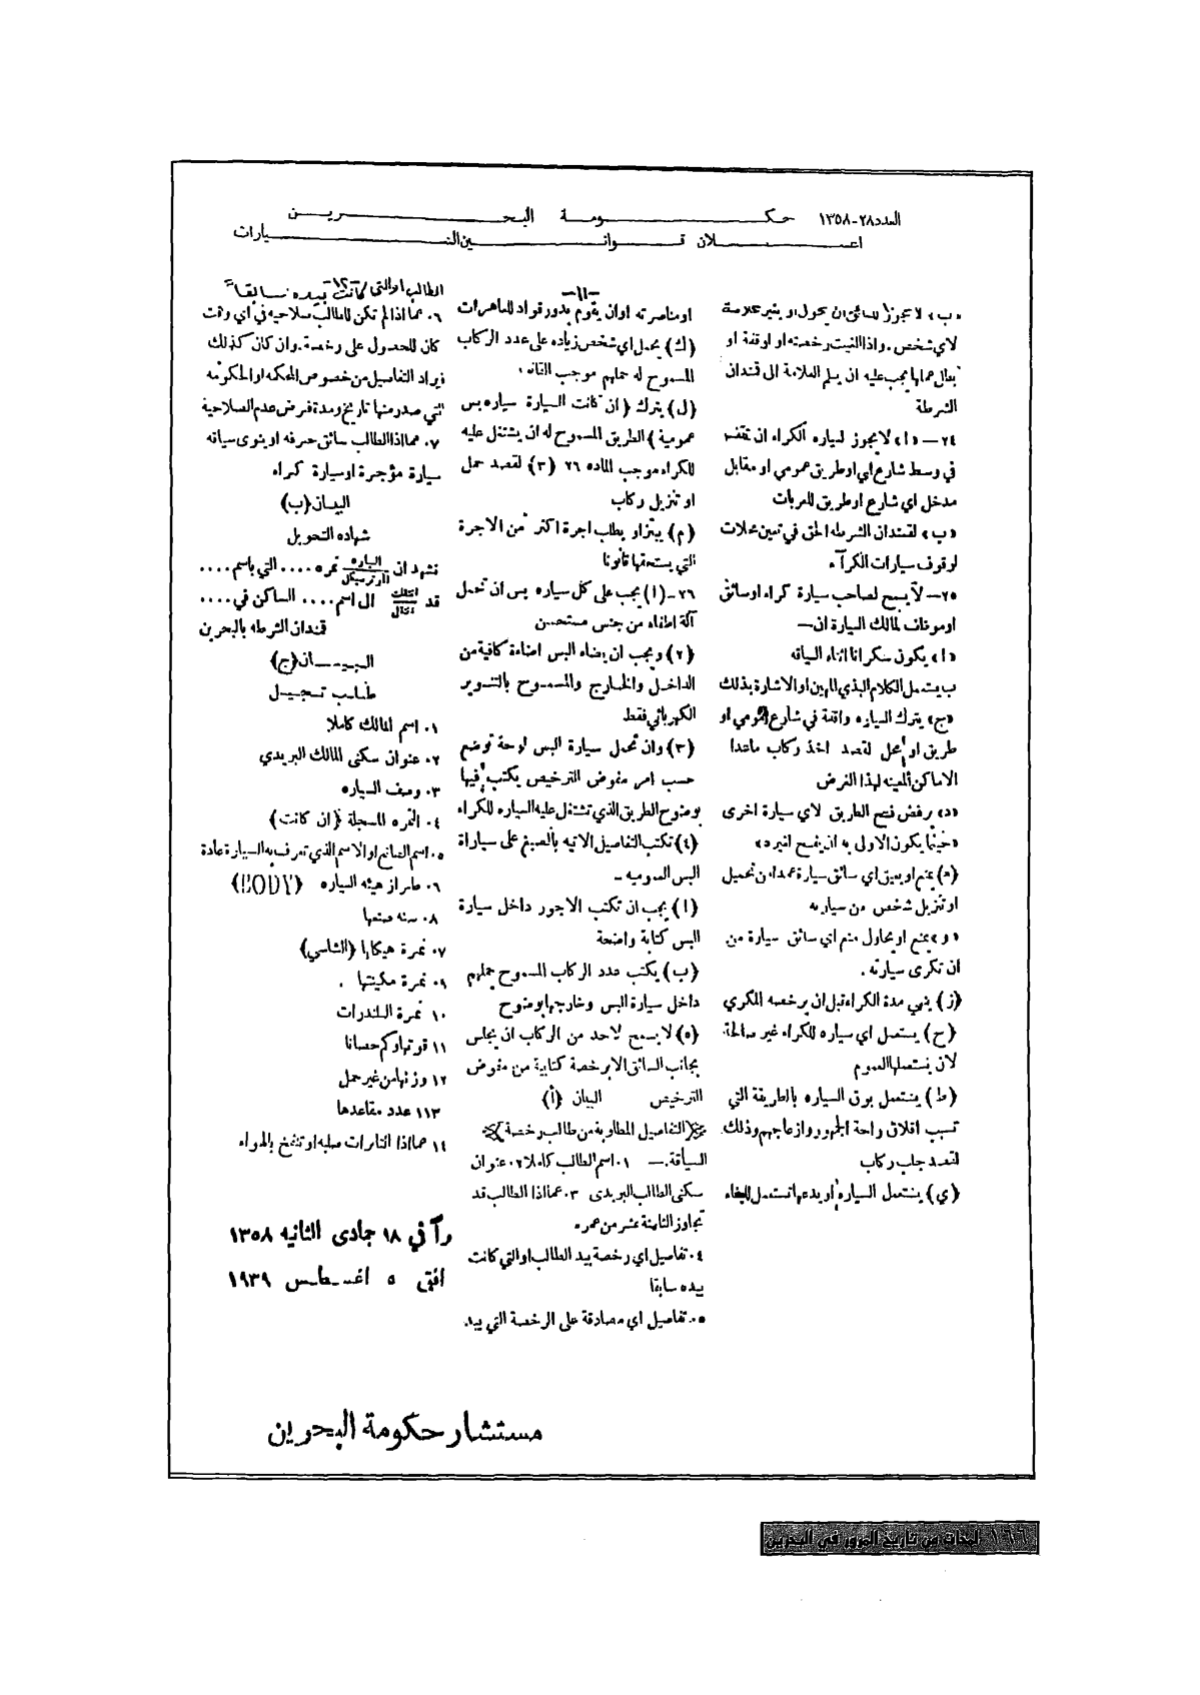 العدد ٢٨-١٣٥٨ حكومة البحرين
اعلان قوانين السيارات
«ب» لا يجوز للسائق ان يحول او يعير علامة
لاي شخص. واذا الغيت رخصته او اوقفة او
بطل عملها يجب عليه ان يسلم العلامة الى قندان
الشرطة
٢٤ــ «ا» لا يجوز لسياره الكراء ان تقف
في وسط شارع اي او طريق عمومي او مقابل
مدخل اي شارع او طريق للعربات
«ب» لقمندان الشرطه الحق في تعين محلات
لوقوف سيارات الكرآء
٢٥ــ لا يسمح لصاحب سيارة كراء او سائق
او موظف لمالك السيارة ان ــ
«ا» يكون سكرانا اثناء السياقه
ب يستعمل الكلام البذي المهين او الاشارة بذلك
«ج» يترك السياره واقفة في شارع عمومي او
طريق او محل لقصد اخذ ركاب ماعدا
الاماكن المعينه لهذا الغرض
«د» يرفض فتح الطريق لاي سيارة اخرى
«حينما يكون الاولى به ان يفسح لغيره»
(ه) يمنع او يعيق اي سائق سيارة عمدا من تحميل
او تنزيل شخص من سيارته
«و» يمنع او يحاول منع اي سائق سيارة من
ان تكرى سيارته.
(ز) ينهي مدة الكراء قبل ان يرخصه المكري
(ح) يستعمل اي سياره للكراء غير صالحة
لان يستعملها العموم
(ط) يستعمل بوق السياره بالطريقة التي
تسبب اقلاق راحة الجمهور وازعاجهم وذلك
لقصد جلب ركاب
(ي) يستعمل السياره او يدعها تستعمل للبغاء
ــ١١ــ
او مناصرته او ان يقوم بدور قواد للماهرات
(ك) يحمل اي شخص زياده على عدد الركاب
المسموح له حملهم موجب القانون.
(ل) يترك (ان كانت السيارة سياره بس
عمومية) الطريق المسموح له ان يشتغل عليه
للكراء موجب الماده ٢٦ (٣) لقصد حمل
او تنزيل ركاب
(م) يبتز او يطلب اجرة اكثر من الاجرة
التي يستحقها قانونا
٢٦-(ا) يجب على كل سياره بس ان تحمل
آلة اطفاء من جنس مستحسن
(٢) ويجب ان يضاء البس اضاءة كافية من
الداخل والخارج والمسموح بالتنوير
الكهربائي فقط
(٣) وان تحمل سيارة البس لوحة توضع
حسب امر مفوض الترخيص يكتب فيها
بوضوح الطريق الذي تشتغل عليه السياره للكراء
(٤) تكتب التفاصيل الاتيه بالصبغ على سياراة
البس العموميه ــ
(ا) يجب ان تكتب الاجور داخل سيارة
البس كتابة واضحة
(ب) يكتب عدد الركاب المسموح حملهم
داخل سيارة البس وخارجها بوضوح
(٥) لا يسمح لاحد من الركاب ان يجلس
بجانب السائق الا برخصة كتابية من مفوض
الترخيص البيان (أ)
(التفاصيل المطلوبة من طالب رخصة)
السياقة. ــ ٠١ اسم الطالب كاملا ٠٢ عنوان
سكنى الطالب البريدى ٠٣ عما اذا الطالب قد
تجاوز الثامنة عشر من عمره
٠٤ تفاصيل اي رخصة بيد الطالب او التي كانت
بيده سابقا
٠٥ تفاصيل اي مصادقة على الرخصة التي بيد
ــ١٢ــ
الطالب او التي كانت بيده سابقاً
٠٦ عما اذا لم تكن للطالب سلاحيه في اي وقت
كان للحصول على رخصة. وان كان كذلك
فيراد التفاسيل من خصوص المحكمه او الحكومه
التي صدر منها تاريخ ومدة فرض عدم الصلاحية
٠٧ عما اذا الطالب سائق حرفه او ينوى سياقه
سيارة مؤجرة او سيارة كراء
البيان (ب)
شهاده التحويل
نشهد ان السياره نمره .... التي باسم ....
الموترسيكل
قد انتقلت الى اسم .... الساكن في ....
انتقل
قمندان الشرطه بالبحرين
البيــان (ج)
طلب تسجيل
٠١ اسم المالك كاملا
٠٢ عنوان سكنى المالك البريدي
٠٣ وصف السياره
٠٤ النمره المسجلة (ان كانت)
٠٥ اسم الصانع او الاسم الذي تعرف به السيارة عادة
٠٦ طراز هيئه السياره (BODY)
٠٨ سنه صنعها
٠٧ نمرة هيكلها (الشاسي)
٠٩ نمرة مكينتها .
١٠ نمرة السلندرات
١١ قوتها وكم حصانا
١٢ وزنها من غير حمل
١١٣ عدد مقاعدها
١٤ عما اذا التايرات صلبه او تنفخ بالهواء
وآ في ١٨ جمادى الثانيه ١٣٥٨
افق ٥ اغسطس ١٩٣٩
مستشار حكومة البحرين
١٦٦ لمحات من تاريخ المرور في البحرين